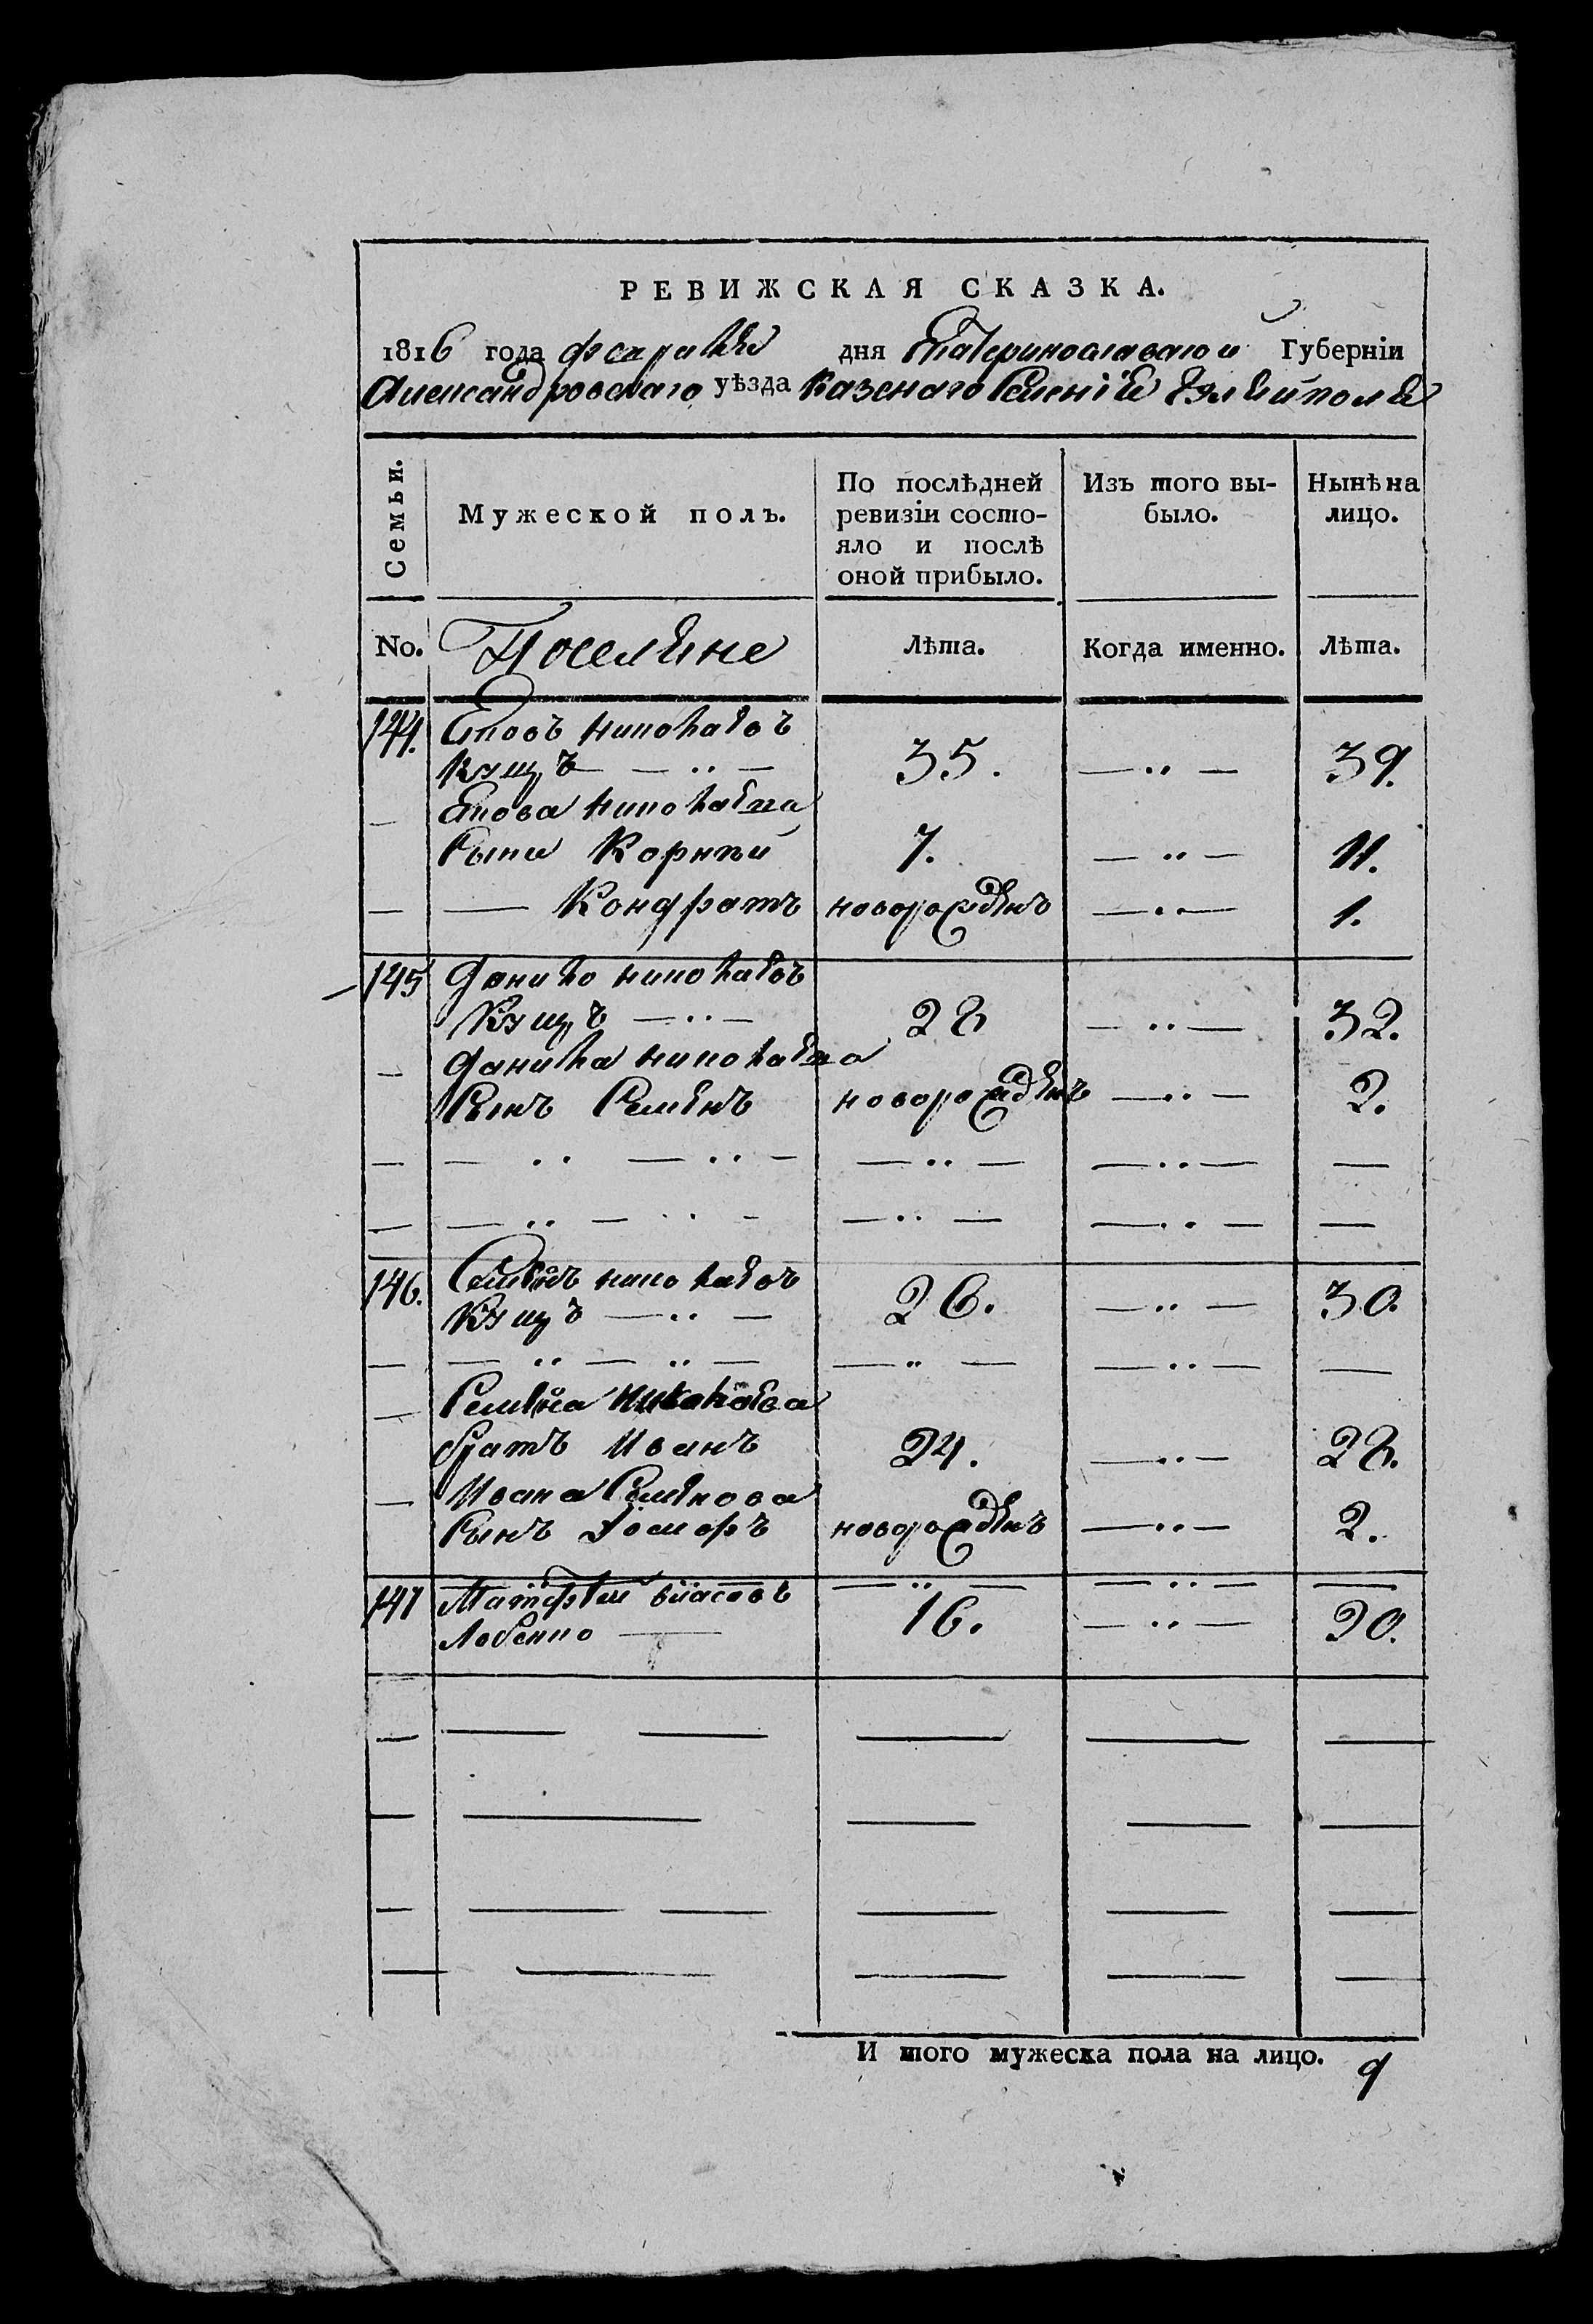 РЕВИЖСКАЯ СКАЗКА.
1816 года февраля дня Екатеринославской Губерніи
Александровского уѣзда Казенаго Селенія Гуляйполя
Семьи.
Мужеской полъ.
По послѣдней ревизіи состо-
яло и послѣ
оной прибыло.
Изъ того вы-
было.
Нынѣ на
лицо.
No. Поселяне Лѣта. Когда именно. Лѣта.
144. Яковъ Николаевъ
Кущъ — 35. — 39.
— Якова Николаева
сынъ Корнѣй 7. — 11.
— — Кондратъ новорожденъ — 1.
145 Данило Николаевъ
Кущъ — 28 — 32.
— Данила Николаева
Сынъ Семенъ новорожденъ — 2.
146. Семенъ Николаевъ
Кущъ — 26. — 30.
— Семена Николаева
братъ Иванъ 24. — 28.
— Ивана Семенова
Сынъ новорожденъ — 2.
147 Матфей Власовъ
16. — 20.
И того мужеска пола на лицо. 9